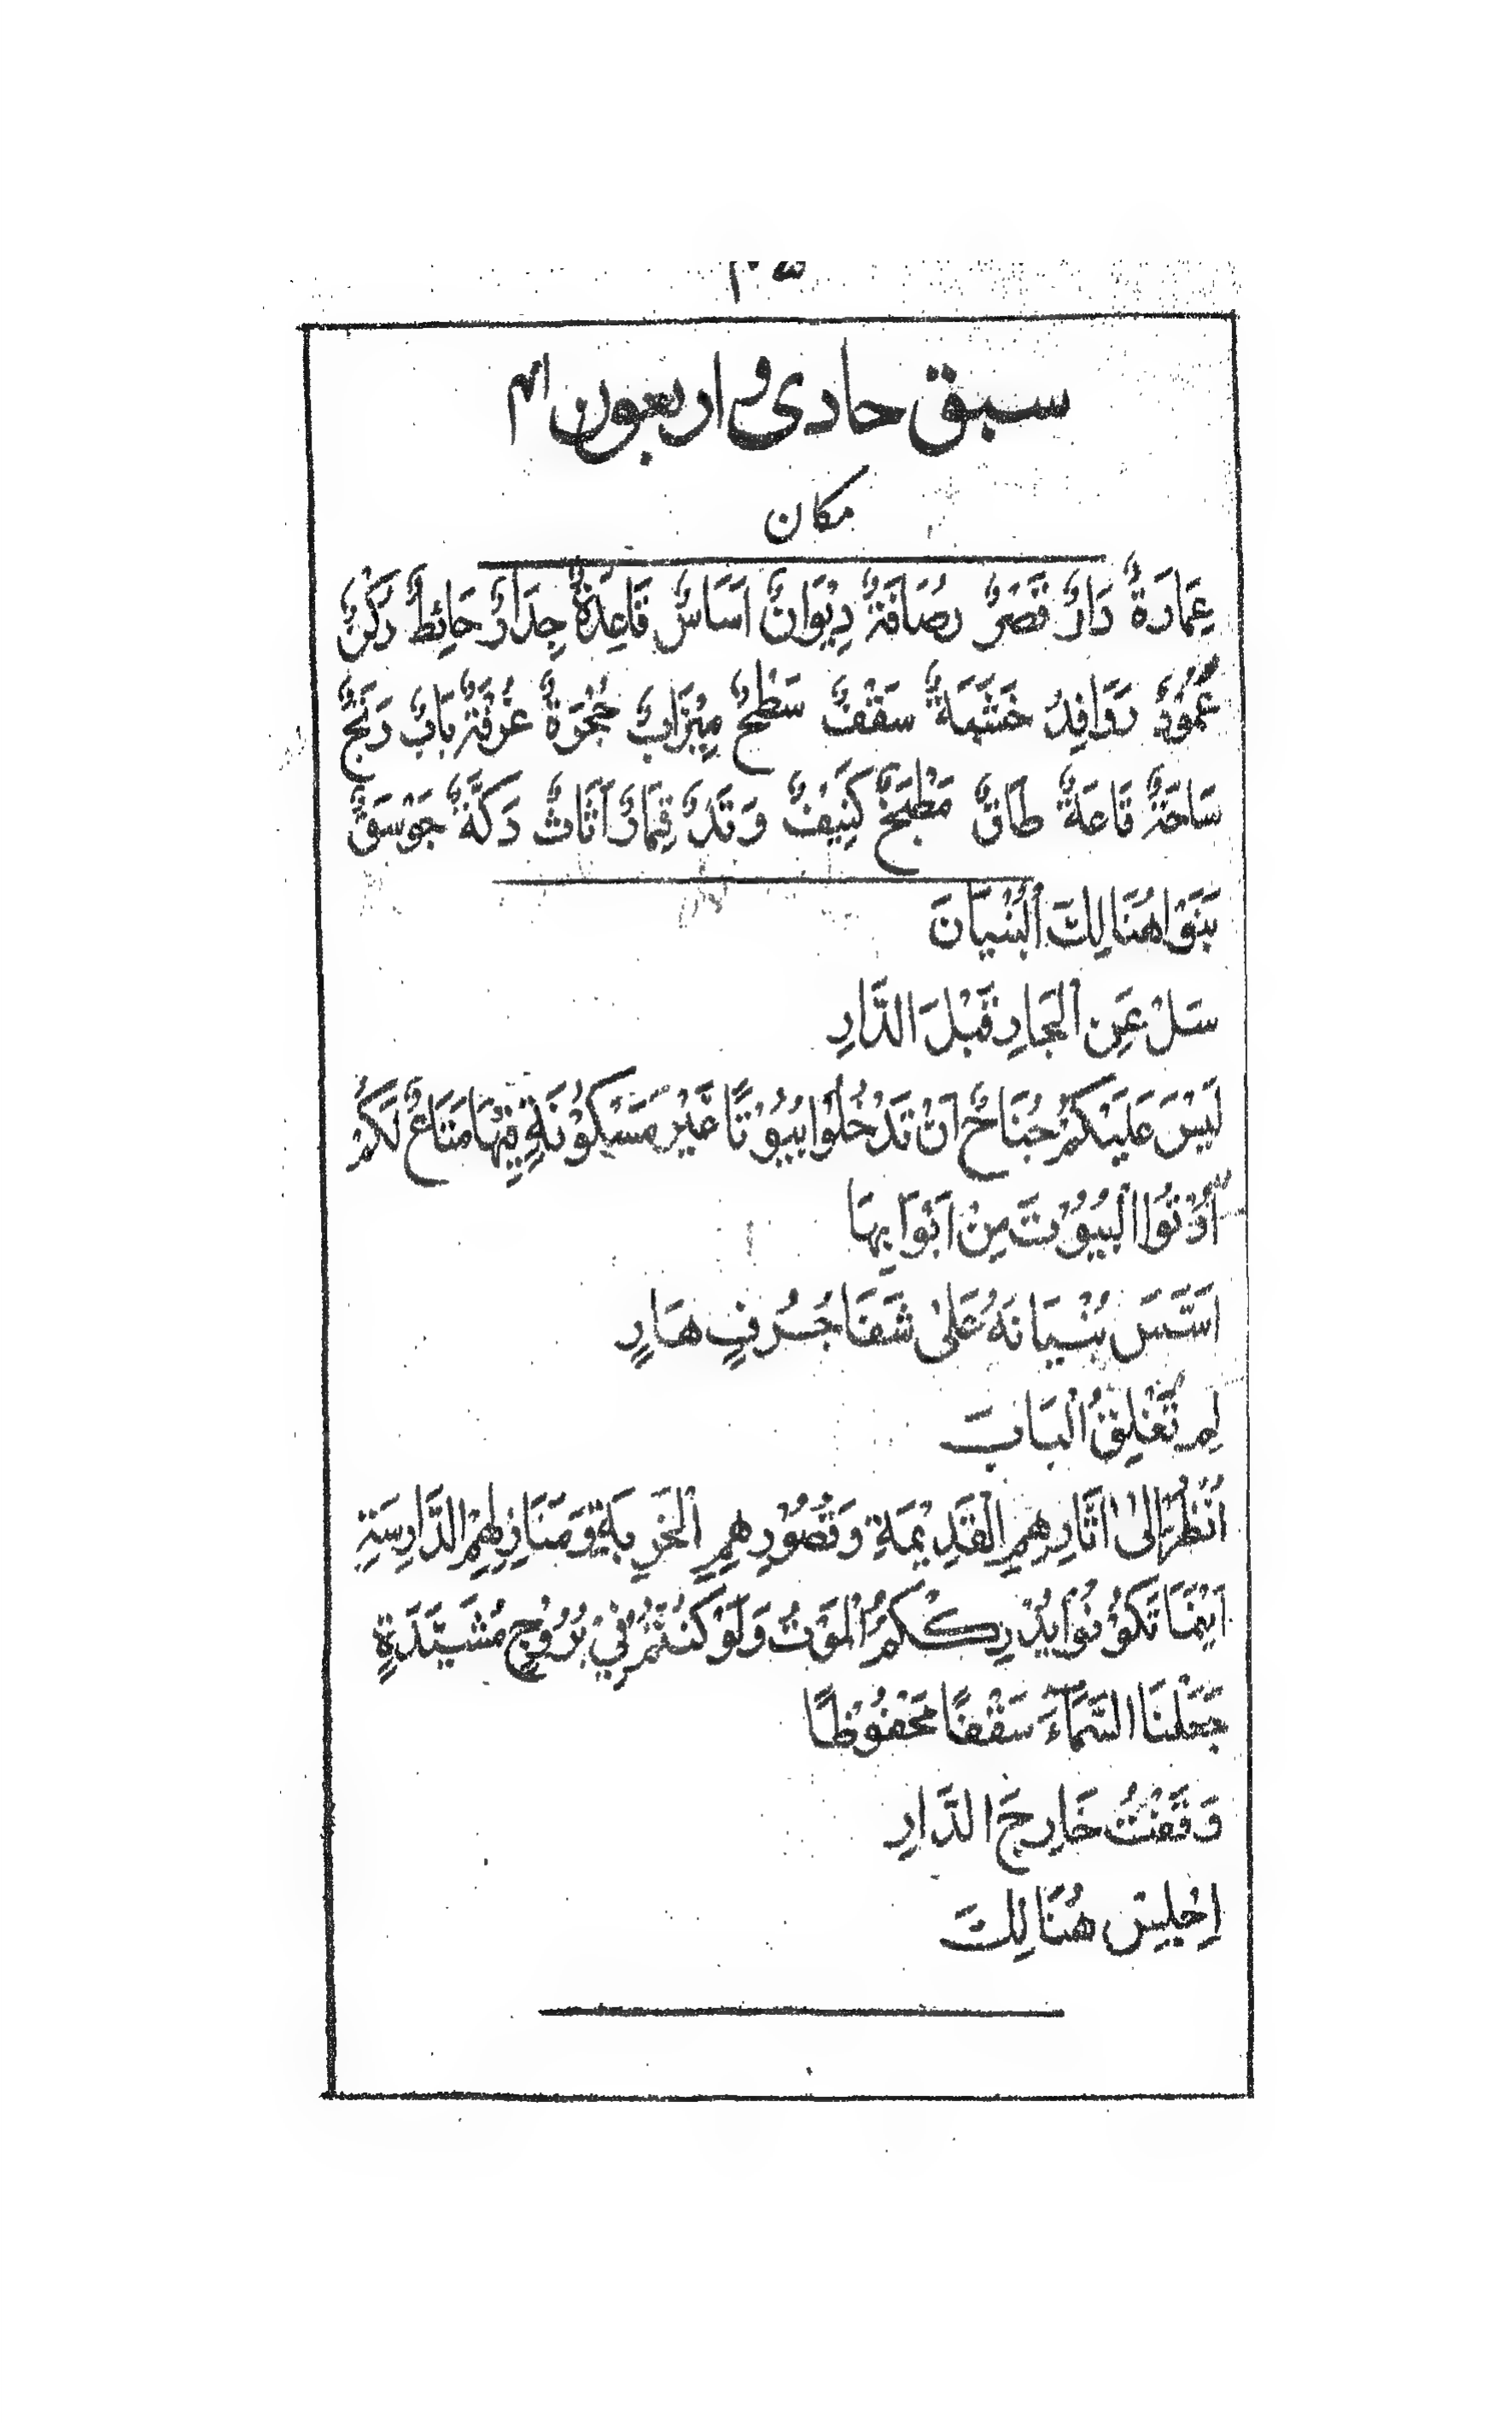 سبق حادی و اربعون ۴۱
مکان
عِمَارَةٌ دَارٌ قَصْرٌ رُصَافَةٌ دِيْوَانٌ اَسَاسٌ قَاعِدَةٌ جِدَارٌ حَائِطٌ رُكْنٌ
عَمُوْدٌ رَوَافِدُ خَشَبَةٌ سَقْفٌ سَطْحٌ مِيْزَابٌ حُجْرَةٌ غُرْفَةٌ بَابٌ رَتَجٌ
سَاحَةٌ قَاعَةٌ طَاقٌ مَطْبَخٌ كَنِيْفٌ وَتَدٌ قِمَارٌ اَثَاثٌ دَكَّةٌ جَوْسَقٌ
بَنَوْا هُنَالِكَ الْبُنْيَانَ
سَلْ عَنِ الْجَارِ قَبْلَ الدَّارِ
لَيْسَ عَلَيْكُمْ جُنَاحٌ اَنْ تَدْخُلُوْا بُيُوْتًا غَيْرَ مَسْكُوْنَةٍ فِيْهَا مَتَاعٌ لَكُمْ
اُدْنُوْا الْبُيُوْتَ مِنْ اَبْوَابِهَا
اَسَّسَ بُنْيَانَهُ عَلٰى شَفَا جُرُفٍ هَارٍ
لِمَ تُغْلِقُ الْبَابَ
اُنْظُرْ اِلٰى اٰثَارِهِمِ الْقَدِيْمَةِ وَقُصُوْرِهِمِ الْخَرِبَةِ وَمَنَازِلِهِمِ الدَّارِسَةِ
اَيْنَمَا تَكُوْنُوْا يُدْرِكْكُمُ الْمَوْتُ وَلَوْ كُنْتُمْ فِيْ بُرُوْجٍ مُشَيَّدَةٍ
جَعَلْنَا السَّمَآءَ سَقْفًا مَحْفُوْظًا
وَقَفْتُ خَارِجَ الدَّارِ
اِجْلِسْ هُنَالِكَ